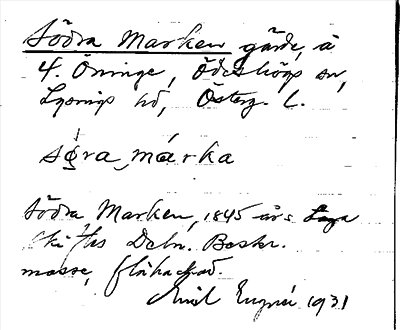 Södra Marken gärde, å
4. Öninge, Ödeshögs sn,
Lysings hd, Österg. l.
sø̀ra ˏmárka
Södra Marken, 1845 års Laga
skiftes Debn. Beskr.
mosse, flåhackad.
Emil 1931